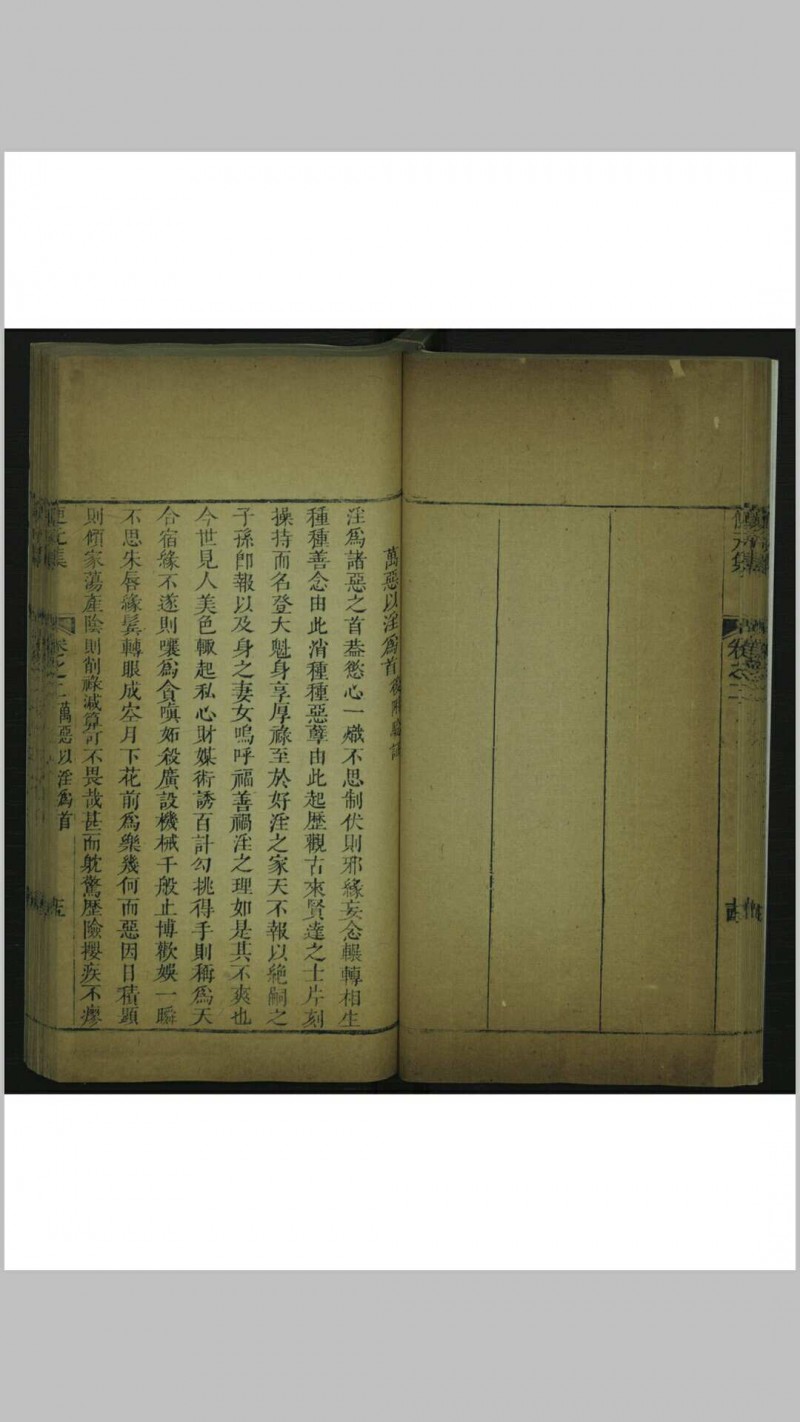 萬惡以淫爲首
淫爲諸惡之首葢慾心一熾不思制伏則邪緣妄念輾轉相生
種種善念由此消種種惡孽由此起歷觀古來賢達之士片刻
操持而名登大魁身享厚祿至於好淫之家天不報以絶嗣之
子孫卽報以及身之妻女嗚呼福善禍淫之理如是其不爽也
今世見人美色輒起私心財媒術誘百計勾挑得手則稱爲天
合宿緣不遂則嚷爲貪嗔妬殺廣設機械千般止博歡娛一瞬
不思朱唇綠鬂轉眼成空月下花前爲樂幾何而惡因日積顯
則傾家蕩產陰則削祿減算可不畏哉甚而躭驚歷險攖疾不瘳
卷之二
萬惡以淫爲首